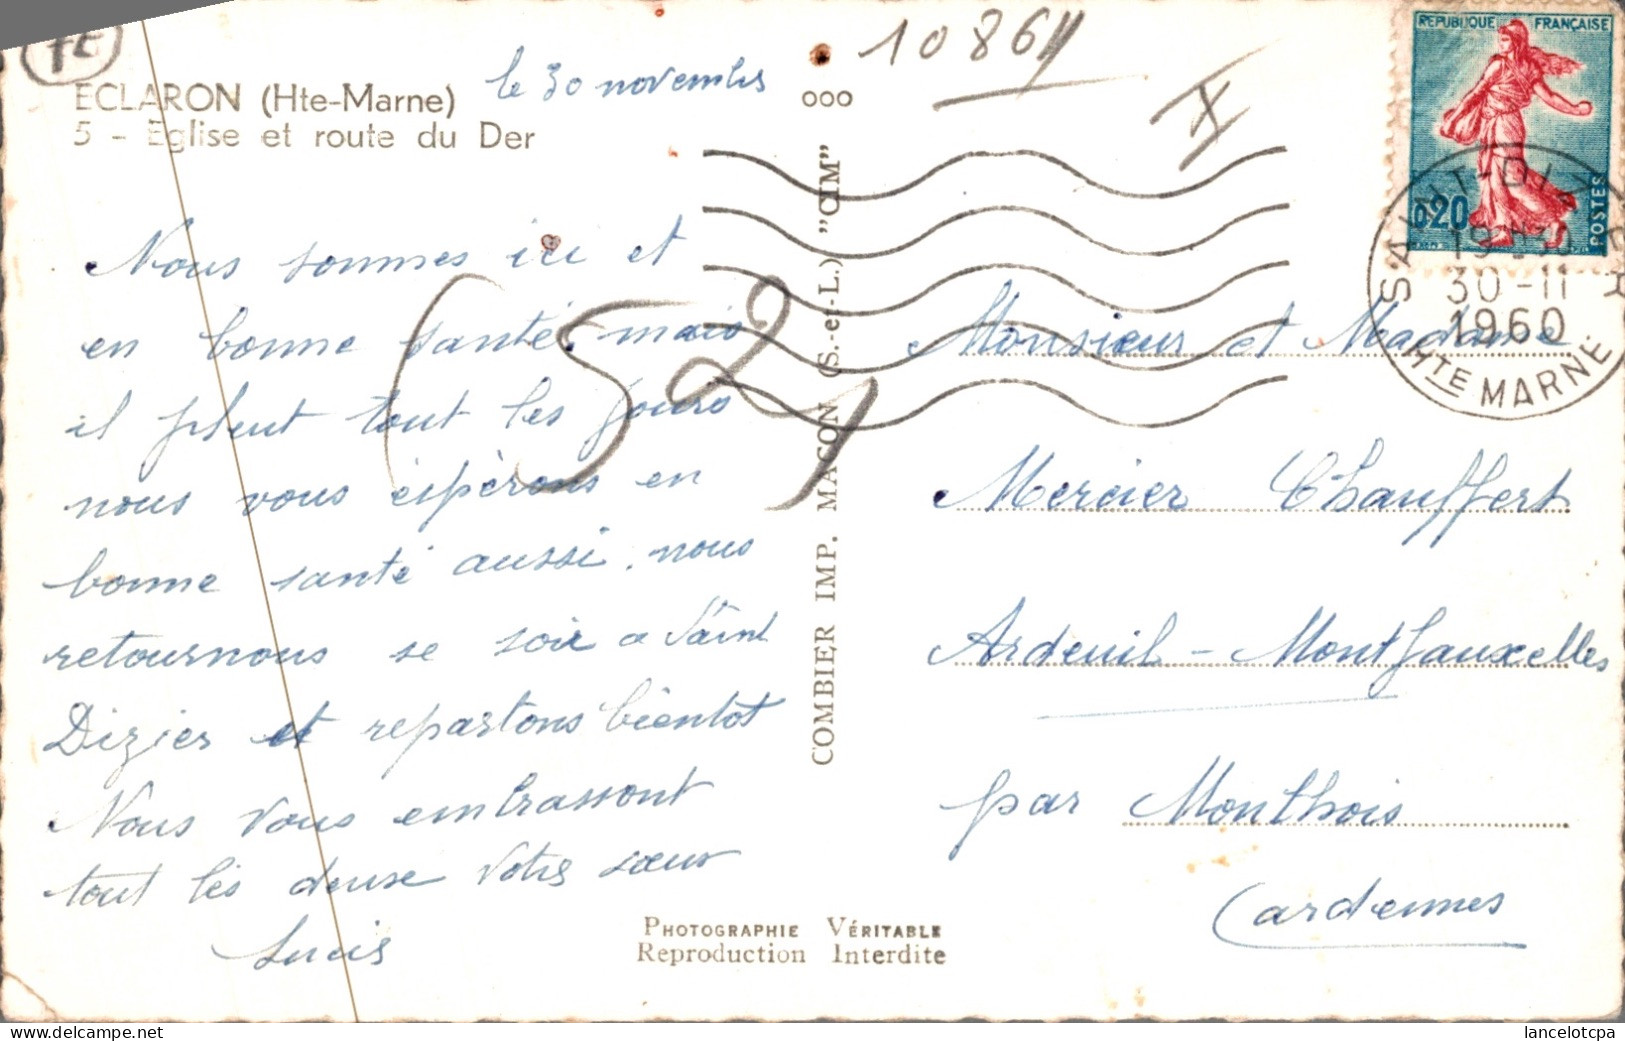 ECLARON (Hte-Marne)
5 - Eglise et route du Der
le 30 novembre
10 86
Nous sommes ici et
en bonne santé, mais
il pleut tout les jours
nous vous éspèrons en
bonne santé aussi, nous
retournons se soir a Saint
Dizier et repartons bientot
Nous Vous embrassont
tout les deuse Votre sœur
(52)
000
COMBIER IMP. MACON (S.-et-L.) "CIM"
PHOTOGRAPHIE VÉRITABLE
Reproduction Interdite
REPUBLIQUE FRANÇAISE
0,20
POSTES
SAINT-DIZIER
30-11
1960
HTE MARNE
Monsieur et Madame
Mercier Chauffert
Ardeuil - Montfauxelles
par Monthois
Ardennes
lancelotcpa